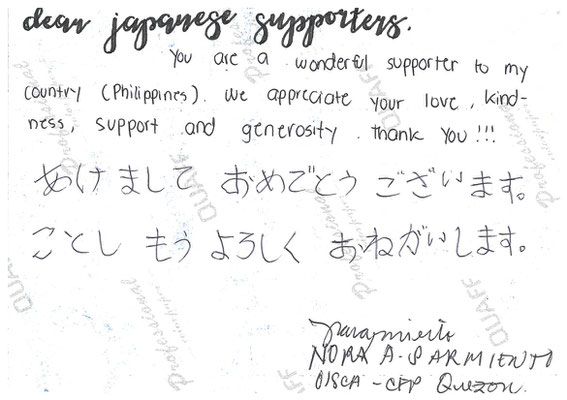 dear japanese supporters.
You are a wonderful supporter to my
country (Philippines). We appreciate your love, kind-
ness, support and generosity. thank you!!!
あけまして おめでとう ございます。
ことし もう よろしく おねがいします。
NORA A. SARMIENTO
OISCA - CFP Quezon.
QUAFF
Professional
QUAFF
Professional
QUAFF
Professional
QUAFF
Professional
QUAFF
Professional
QUAFF